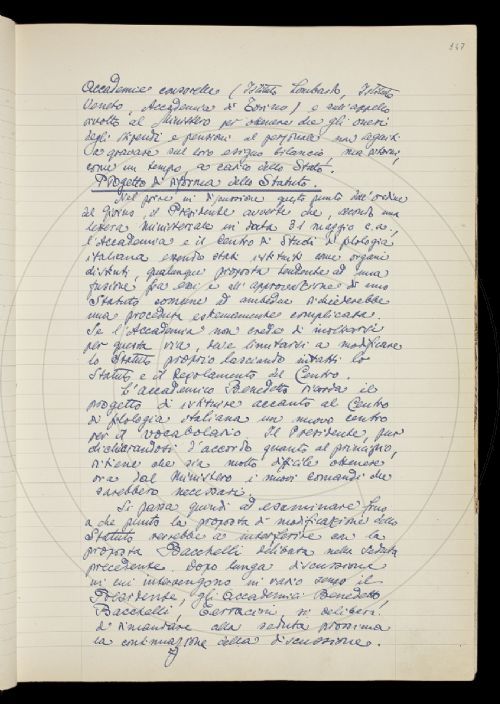 147
Accademie consorelle (Istituto Lombardo, Istituto
Veneto, Accademia di Torino) e sull'appello
rivolto al Ministero per ottenere che gli oneri
degli stipendi e pensioni al personale non
a gravare sul loro esiguo bilancio ma
come un tempo, a carico dello Stato.
Progetto di riforma dello Statuto.
Nel porre in discussione questo punto dell'ordine
del giorno, il Presidente avverte che, secondo una
lettera ministeriale in data 31 maggio c.a.,
l'Accademia e il Centro di Studi di filologia
italiana essendo stati istituiti come organi
distinti, qualunque proposta tendente ad una
fusione fra essi e all'approvazione di uno
Statuto comune ad ambedue richiederebbe
una procedura estremamente complicata.
Se l'Accademia non crede di inoltrarsi
per questa via, deve limitarsi a modificare
lo Statuto proprio lasciando intatti lo
Statuto e il Regolamento del Centro.
L'accademico Benedetto ricorda il
progetto di istituire accanto al Centro
di filologia italiana un nuovo centro
per il vocabolario. Il Presidente, pur
dichiarandosi d'accordo quanto al principio,
ritiene che sia molto difficile ottenere
ora dal Ministero i nuovi comandi che
sarebbero necessari.
Si passa quindi ad esaminare fino
a che punto la proposta di modificazione dello
Statuto verrebbe a interferire con la
proposta Bacchelli deliberata nella seduta
precedente. Dopo lunga discussione
in cui intervengono in vario senso il
Presidente, gli Accademici Benedetto,
Bacchelli, Terracini, si deliberi
di rimandare alla seduta prossima
la continuazione della discussione.